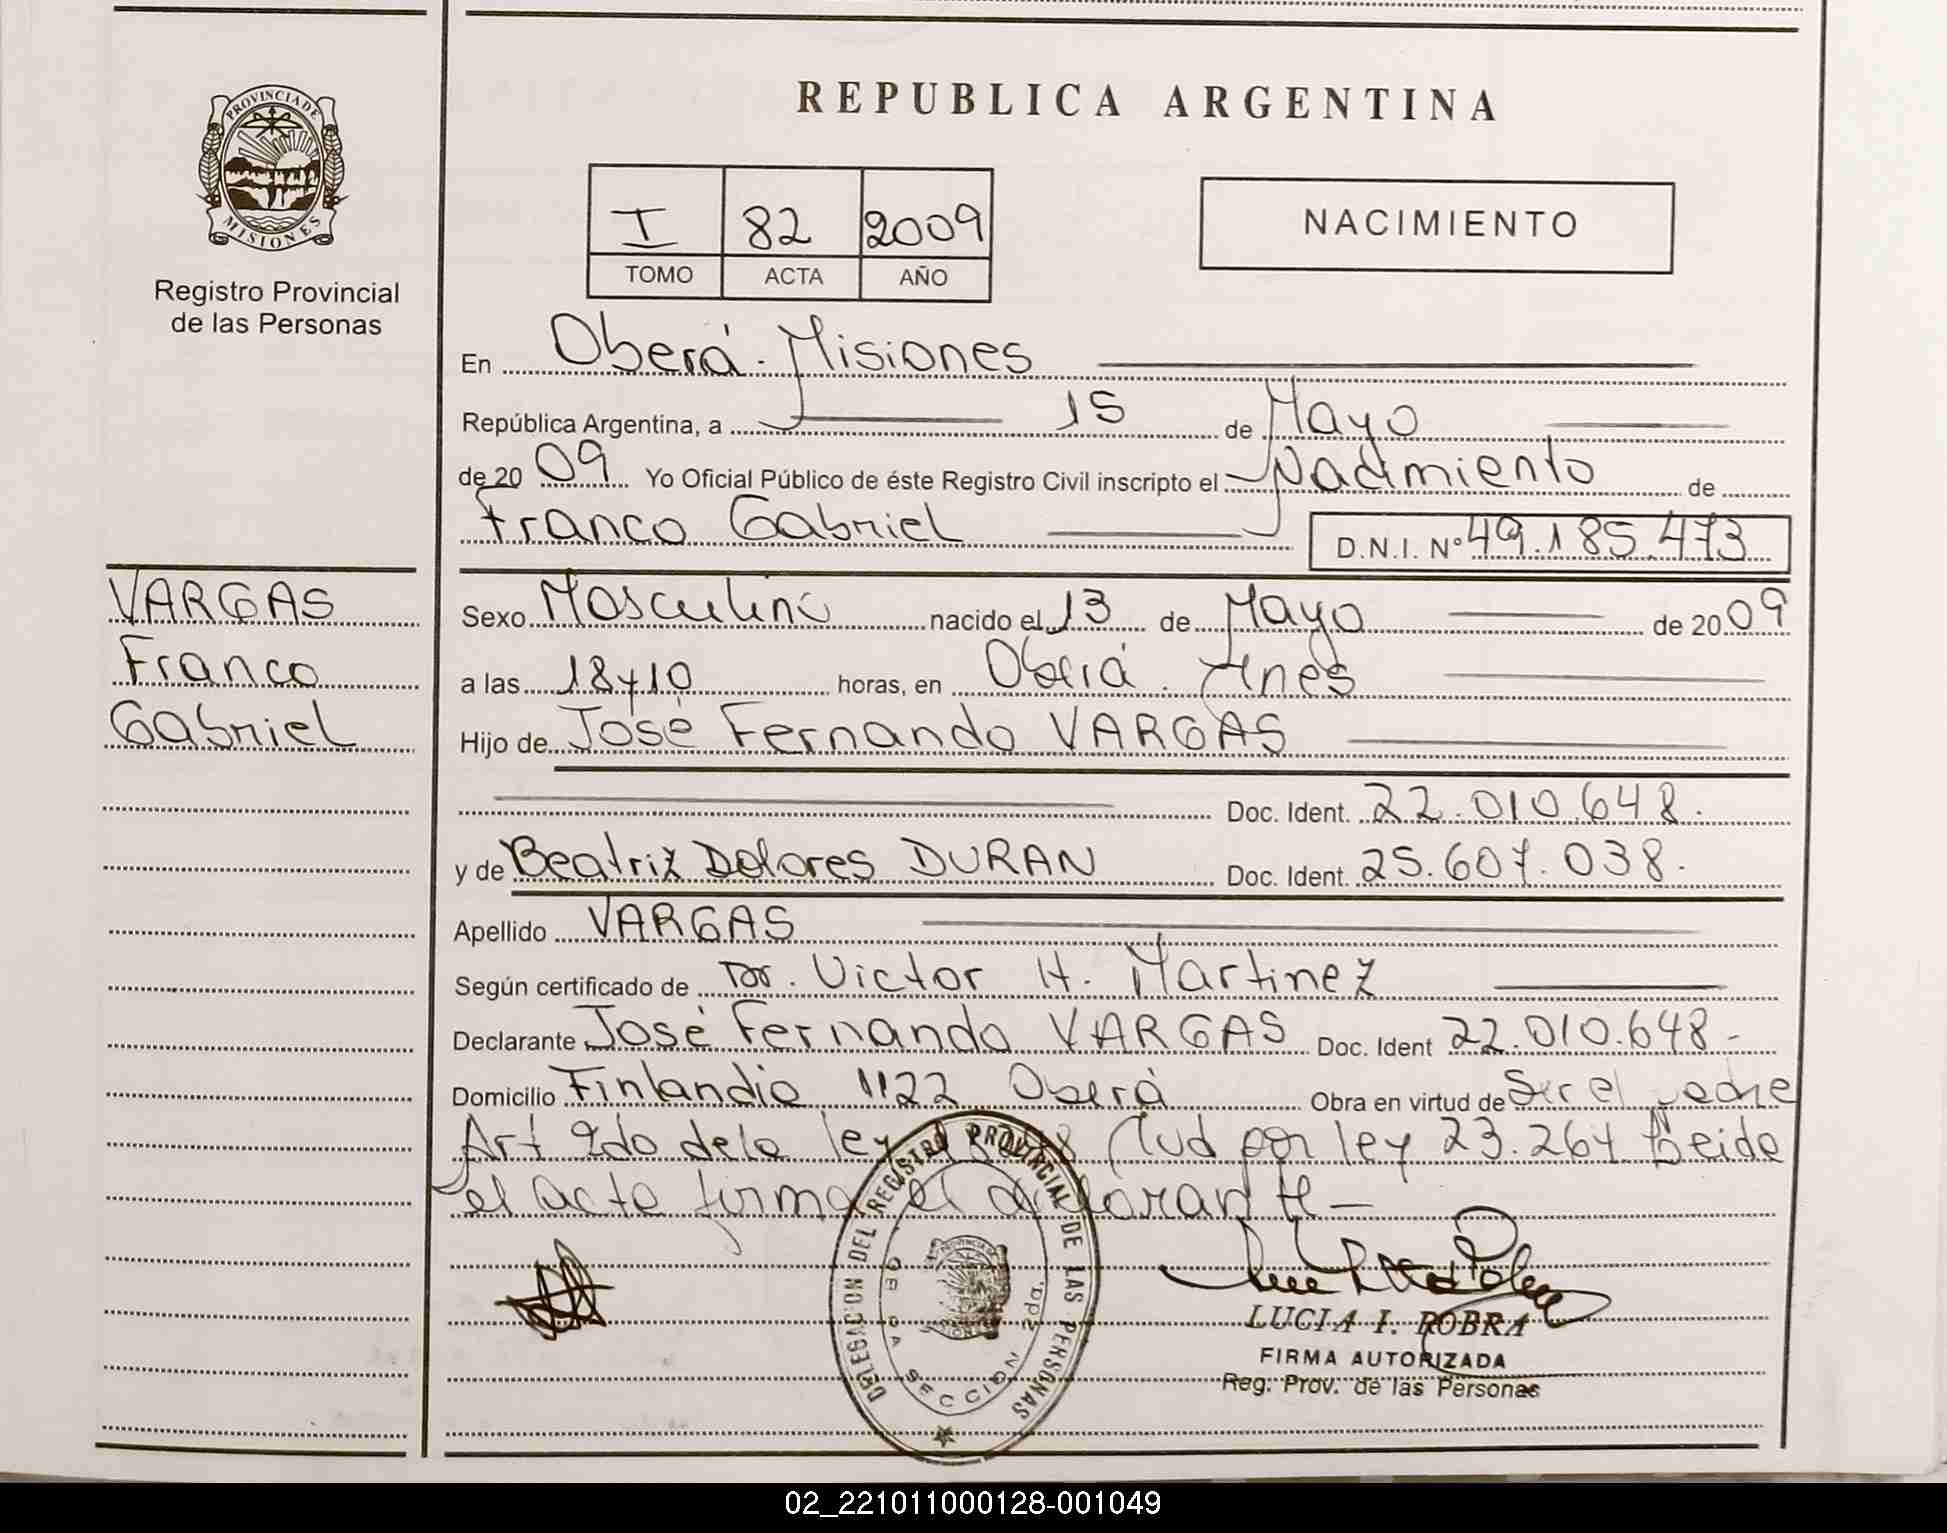 PROVINCIA DE
MISIONES
Registro Provincial
de las Personas
REPUBLICA ARGENTINA
I 82 2009
TOMO ACTA AÑO
NACIMIENTO
En Oberá - Misiones
República Argentina, a 15 de Mayo
de 2009 Yo Oficial Público de éste Registro Civil inscripto el Nacimiento de
Franco Gabriel D.N.I. Nº 49.185.473
VARGAS
Franco
Gabriel
Sexo Masculino nacido el 13 de Mayo de 2009
a las 18 y 10 horas, en Oberá. Mnes
Hijo de José Fernando VARGAS
Doc. Ident. 22.010.648.
y de Beatriz Dolores DURAN Doc. Ident. 25.607.038.
Apellido VARGAS
Según certificado de Dr. Victor H. Martinez
Declarante José Fernando VARGAS Doc. Ident 22.010.648-
Domicilio Finlandia 1122 Oberá Obra en virtud de Ser el padre
Art 2do de la ley por ley 23.264 Leida
el acta firma el declarante -
DELEGACION DEL REGISTRO PROVINCIAL DE LAS PERSONAS
2da. SECCION
LUCIA I. POBRA
FIRMA AUTORIZADA
Reg. Prov. de las Personas
02_221011000128-001049